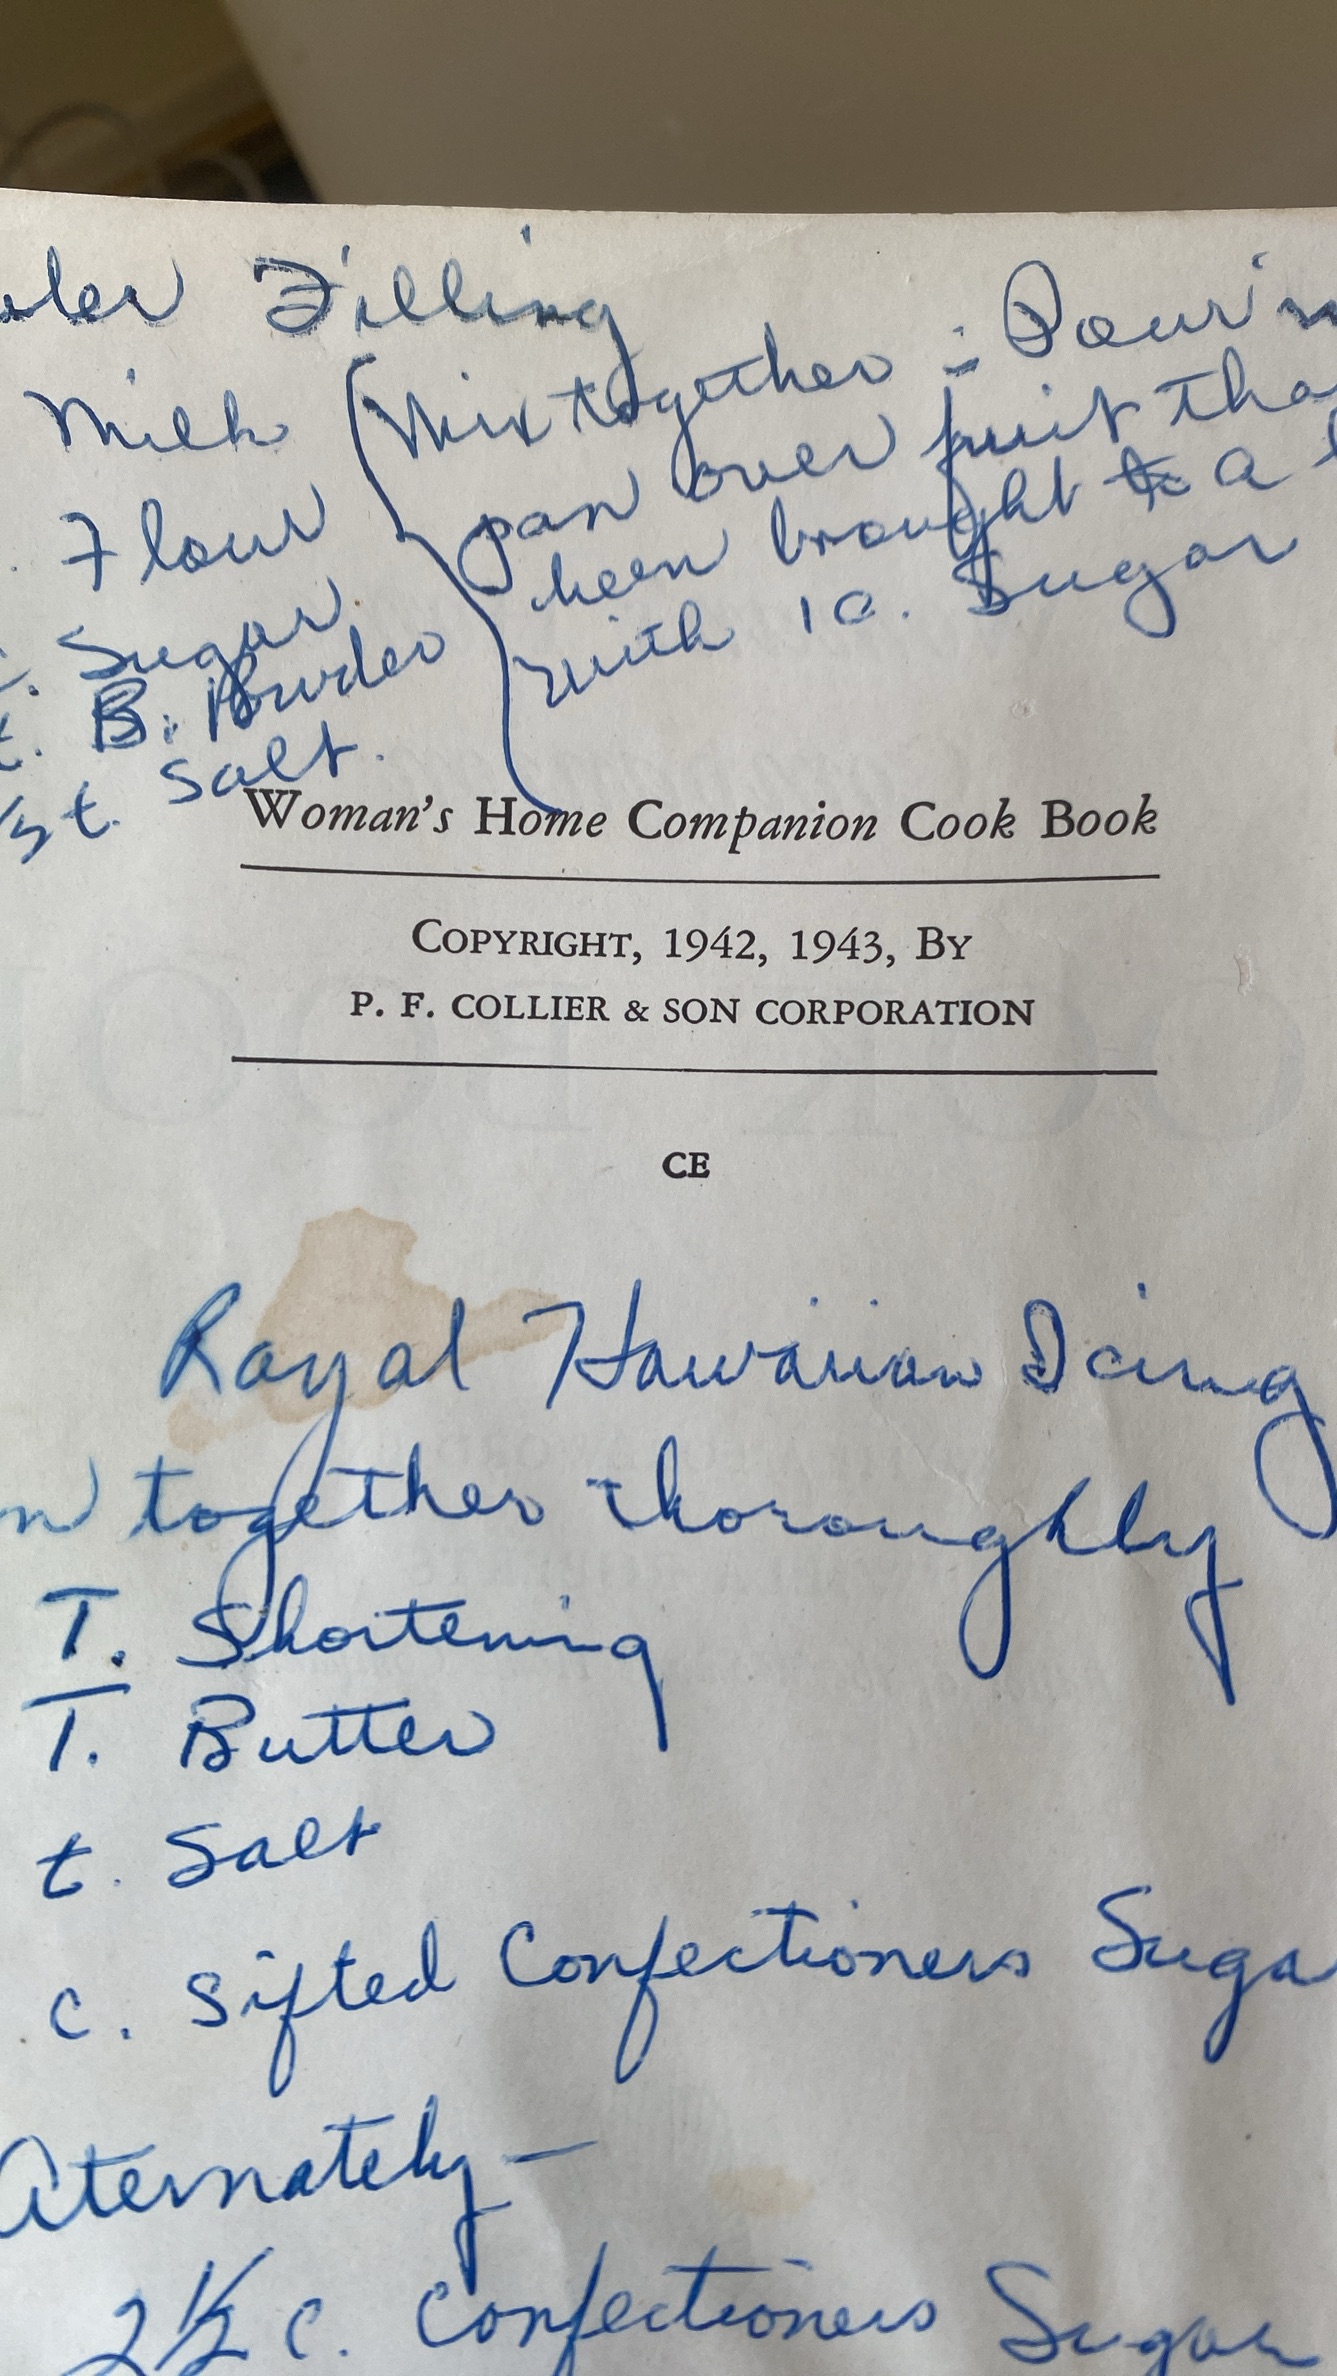 Filling
Milk Mix together - Pour in
Flour pan over fruit tha
Sugar been brought to a
B. Powder with 1 c. Sugar
t. Salt.
Woman's Home Companion Cook Book
COPYRIGHT, 1942, 1943, BY
P. F. COLLIER & SON CORPORATION
CE
Royal Hawaiian Icing
together thoroughly
T. Shortening
T. Butter
t. Salt
c. Sifted Confectioners Suga
Aternately —
2 1/2 c. Confectioners Sugar